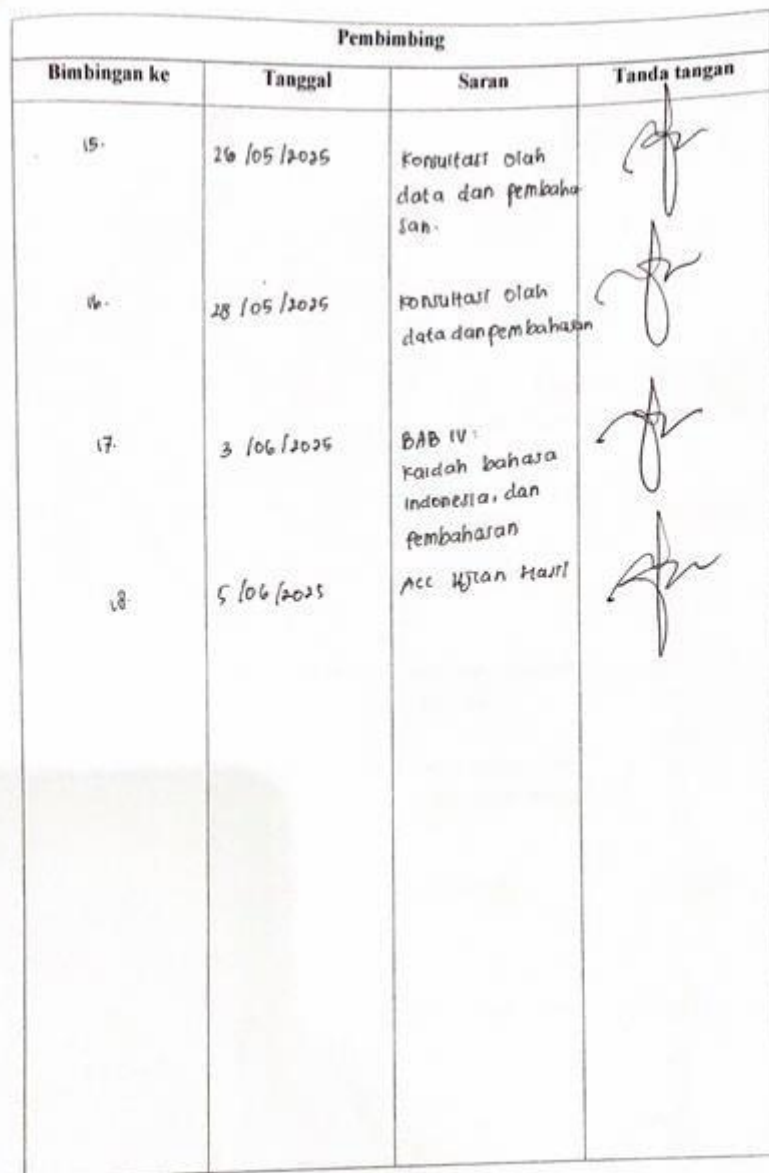 Pembimbing
Bimbingan ke Tanggal Saran Tanda tangan
15. 26/05/2025 Konsultasi olah
data dan pembaha
san.
16. 28/05/2025 Konsultasi olah
data dan pembahasan
17. 3/06/2025 BAB IV:
Kaidah bahasa
Indonesia, dan
Pembahasan
18. 5/06/2025 Acc Ujian Hasil